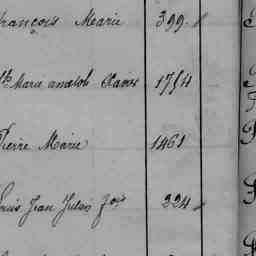 François Marie 399
Marie anatole Xavier 1754
Pierre Marie 1461
Louis Jean Julien 224